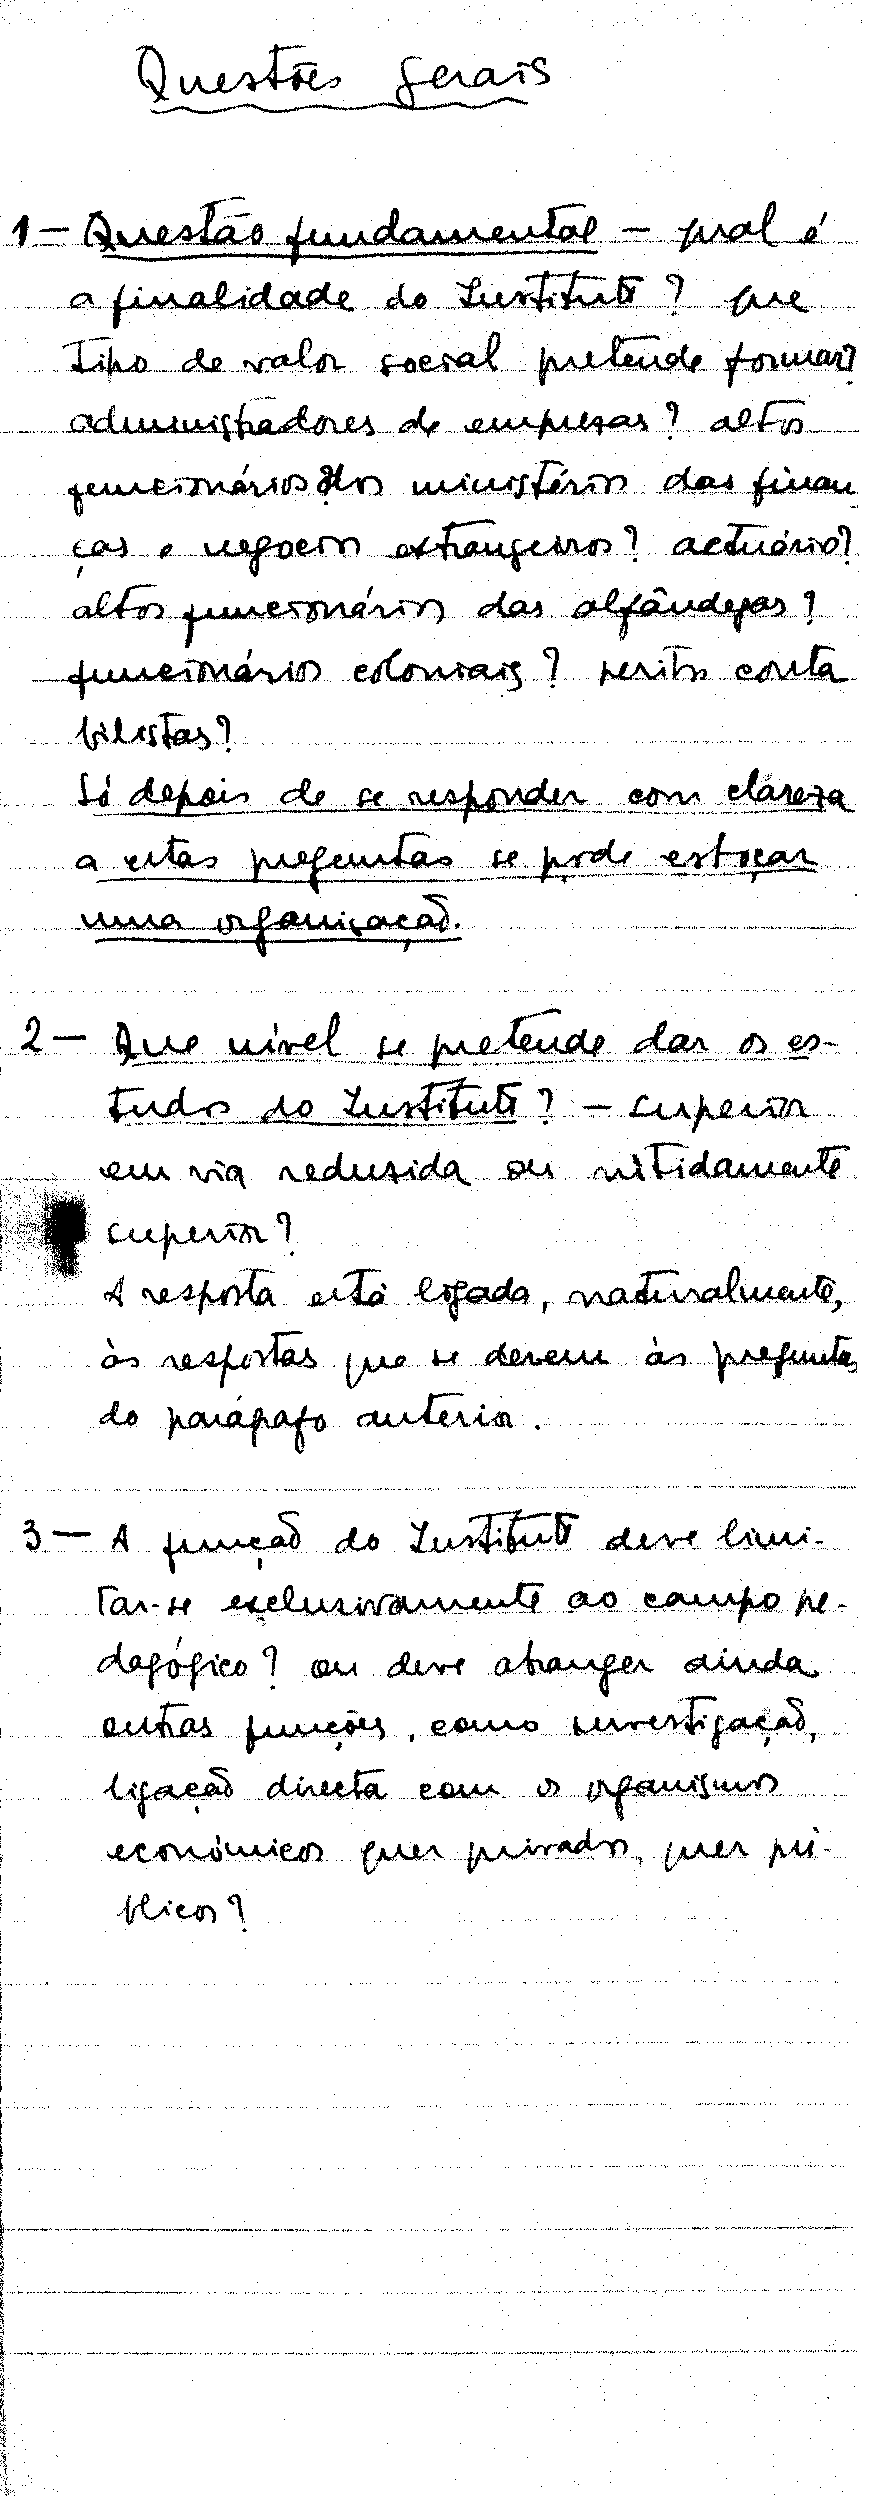 Questões gerais
1 — Questão fundamental — qual é
a finalidade do Instituto? que
tipo de valor social pretende formar?
administradores de empresas? altos
funcionários dos ministérios das finan
ças e negocios extrangeiros? actuários?
altos funcionários das alfândegas?
funcionários coloniais? peritos conta
bilistas?
Só depois de se responder com clareza
a estas preguntas se pode esboçar
uma organização.
2 — Que nível se pretende dar os es-
tudos do Instituto? — superior
em via reduzida ou nitidamente
superior?
A resposta está ligada, naturalmente,
às respostas que se derem às preguntas
do parágrafo anterior.
3 — A função do Instituto deve limi-
tar-se exclusivamente ao campo pe-
dagógico? ou deve abranger ainda
outras funções, como investigação,
ligação directa com os organismos
económicos quer privados, quer pú-
blicos?